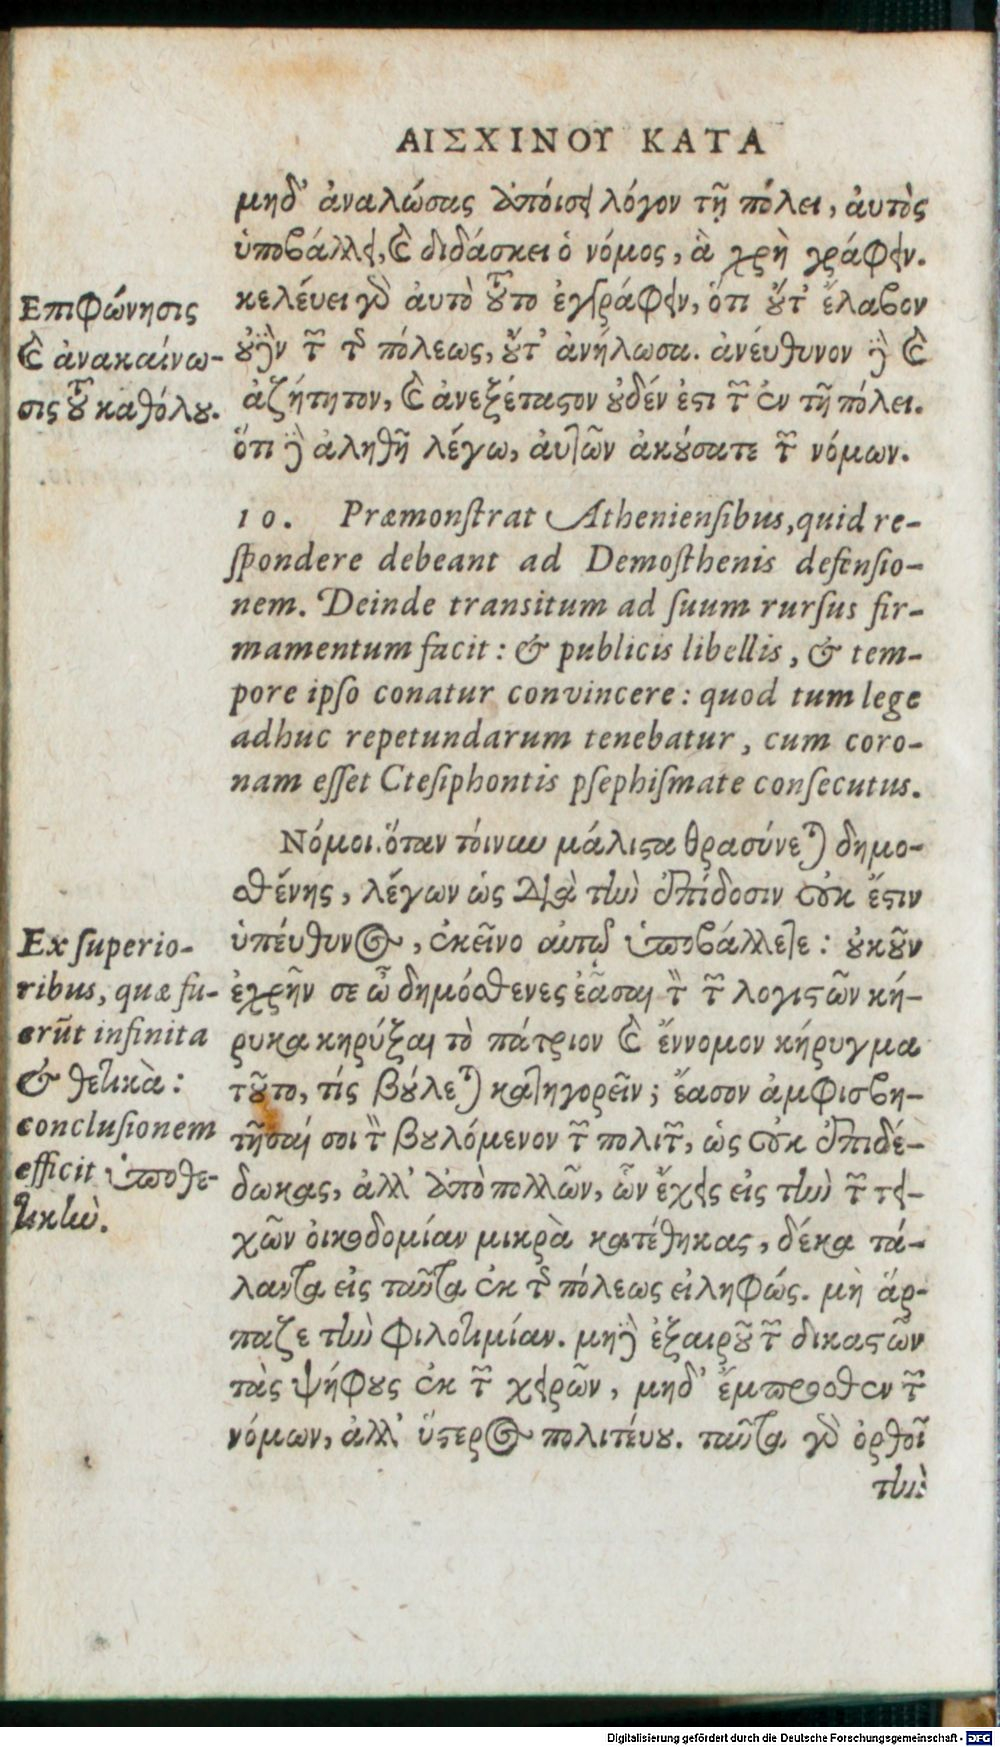 ΑΙΣΧΙΝΟΥ ΚΑΤΑ
μηδ' ἀναλώσας ἀποίσει λόγον τῇ πόλει, ἀυτὸς
ὑποβάλλει, καὶ διδάσκει ὁ νόμος, ἃ χρὴ γράφειν.
κελέυει γὰρ ἀυτὸ τοῦτο ἐγγράφειν, ὅτι οὔτ' ἔλαβον
οὐδὲν τῶν τῆς πόλεως, οὔτ' ἀνήλωσα. ἀνέυθυνον δὲ καὶ
ἀζήτητον, καὶ ἀνεξέταστον οὐδέν ἐστι τῶν ἐν τῇ πόλει.
ὅτι δὲ ἀληθῆ λέγω, ἀυτῶν ἀκούσατε τῶν νόμων.
Επιφώνησις
καὶ ἀνακαίνω-
σις τοῦ καθόλου.
10. Præmonſtrat Athenienſibus, quid re-
ſpondere debeant ad Demoſthenis defenſio-
nem. Deinde transitum ad ſuum rurſus fir-
mamentum facit: & publicis libellis, & tem-
pore ipſo conatur convincere: quod tum lege
adhuc repetundarum tenebatur, cum coro-
nam eſſet Cteſiphontis pſephiſmate conſecutus.
Νόμοι. ὅταν τόινυν μάλιστα θρασύνεται δημο-
σθένης, λέγων ὡς διὰ τὴν ἐπίδοσιν οὐκ ἔστιν
ὑπέυθυνος, ἐκεῖνο αὐτῷ ὑποβάλλετε: οὐκοῦν
ἐχρῆν σε ὦ δημόσθενες ἐᾶσαι τὸν τῶν λογιστῶν κή-
ρυκα κηρύξαι τὸ πάτριον καὶ ἔννομον κήρυγμα
τοῦτο, τίς βούλεται κατηγορεῖν; ἔασον ἀμφισβη-
τῆσαί σοι τὸν βουλόμενον τῶν πολιτῶν, ὡς οὐκ ἐπιδέ-
δωκας, ἀλλ' ἀπὸ πολλῶν, ὧν ἔχεις εἰς τὴν τῶν τει-
χῶν οἰκοδομίαν μικρὰ κατέθηκας, δέκα τά-
λαντα εἰς ταῦτα ἐκ τῆς πόλεως εἰληφώς. μὴ ἅρ-
παζε τὴν φιλοτιμίαν. μηδὲ ἐξαιροῦ τῶν δικαστῶν
τὰς ψήφους ἐκ τῶν χειρῶν, μηδ' ἔμπροσθεν τῶν
νόμων, ἀλλ' ὕστερος πολιτέυου. ταῦτα γὰρ ὀρθοῖ
τὴν
Ex ſuperio-
ribus, quæ fu-
erũt infinita
& θετικὰ:
concluſionem
efficit ὑποθε-
τικὴν.
Digitalisierung gefördert durch die Deutsche Forschungsgemeinschaft - DFG